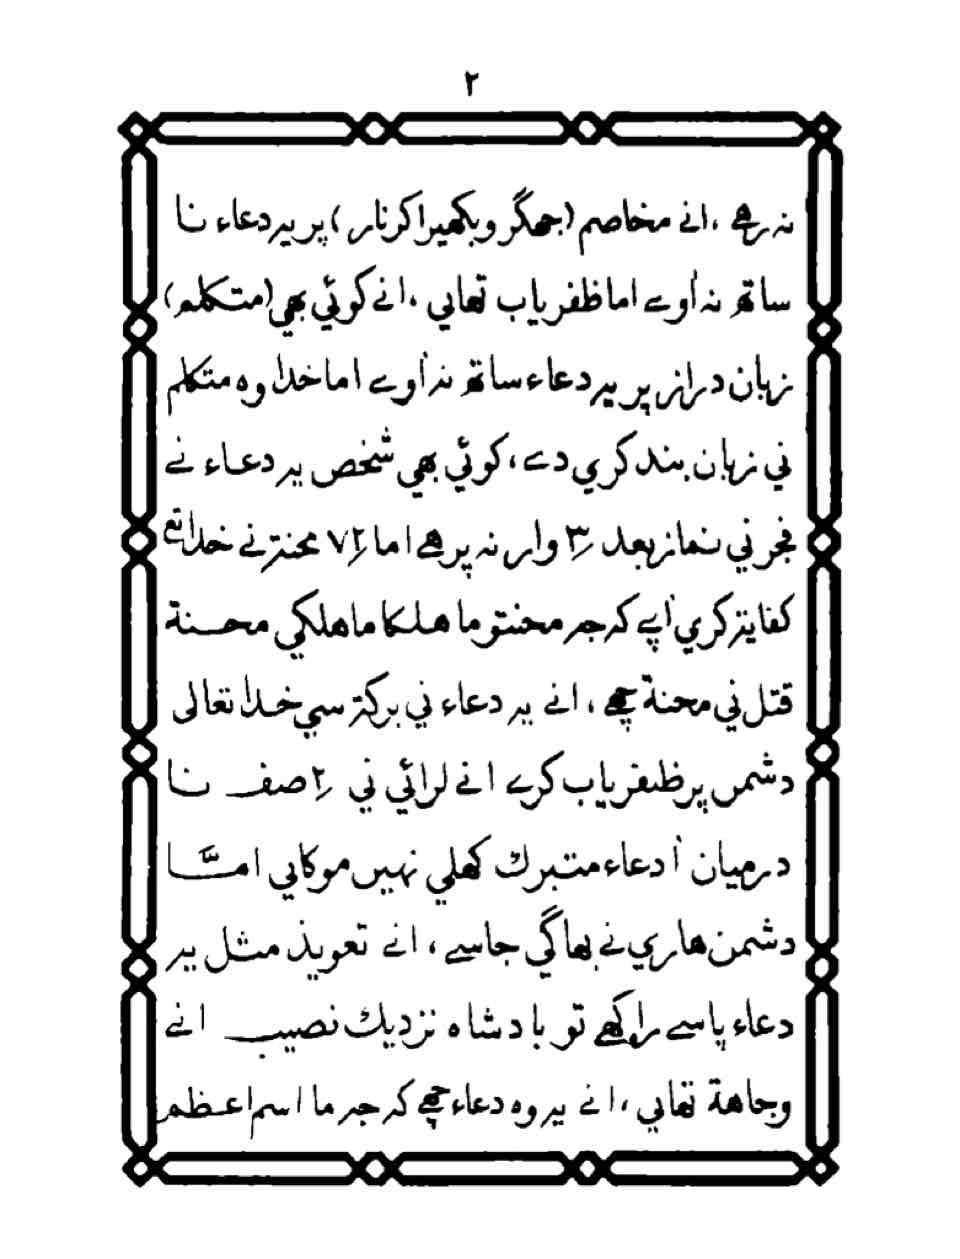 ٢
نہ رهے ، انے مخاصم (جھگر و بکھیرا کرنار) پر یہ دعاء نا
ساتھ نہ اٰوے اما ظفریاب تھائي ، انے كوئي بھي (متكلم)
زبان دراز پر یہ دعاء ساتھ نہ اٰوے اما خدا وہ متكلم
ني زبان بند كري دے ، كوئي بھي شخص یہ دعاء نے
فجر ني نماز بعد ٣ وار نہ پرهے اما ٧٢ محنتر نے خدا تع
كفايتر كري اٰپے كہ جہ محنتو ما هلكا ما هلكي محنة
قتل ني محنة چھے ، انے یہ دعاء ني بركتر سي خدا تعالى
دشمن پر ظفریاب كرے انے لرائي ني ٢ صف نا
درمیان اٰ دعاء متبرك كھلي نہیں موكايي امَّا
دشمن هاري نے بھاگي جاسے ، انے تعویذ مثل یہ
دعاء پاسے راكھے تو بادشاہ نزدیك نصیب انے
وجاهة تھائي ، انے یہ وہ دعاء چھے كہ جہ ما اسم اعظم